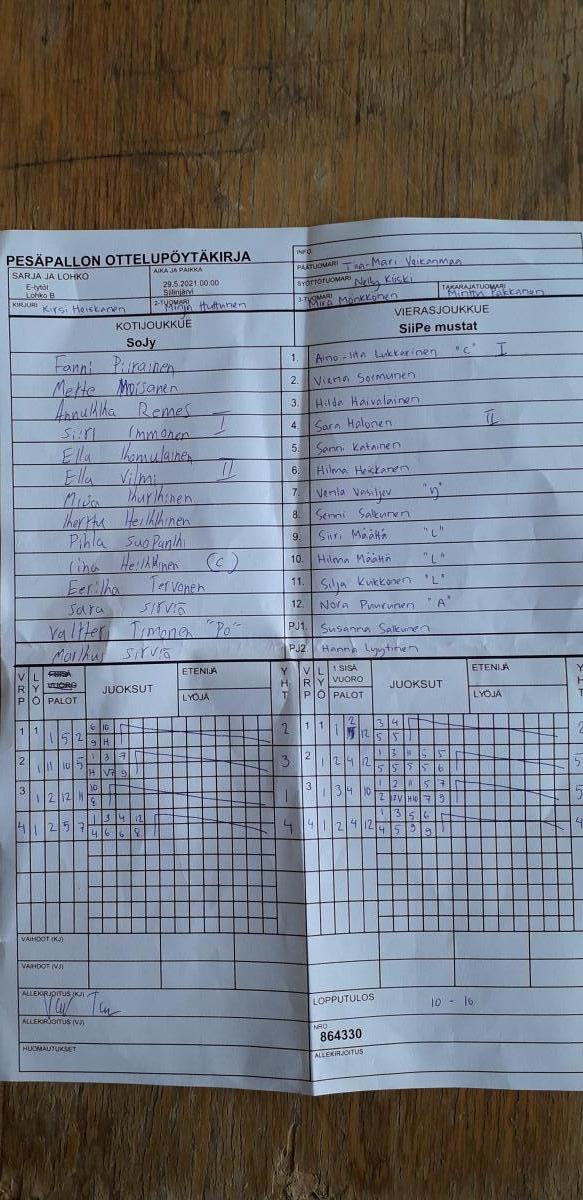 PESÄPALLON OTTELUPÖYTÄKIRJA
INFO
PÄÄTUOMARI Tiia-Mari Voikanmaa
SARJA JA LOHKO
E-tytöt
Lohko B
AIKA JA PAIKKA
29.5.2021 00:00
Siilinjärvi
SYÖTTÖTUOMARI Nelly Kiiski
TAKARAJATUOMARI Minttu Pakkanen
KIRJURI Kirsi Heiskanen
2-TUOMARI Minja Huttunen
3-TUOMARI Mira Mönkkönen
KOTIJOUKKUE
SoJy
VIERASJOUKKUE
SiiPe mustat
Fanni Piirainen 1. Aino-Iita Lukkarinen "C" I
Mette Moisanen 2. Viena Sormunen
Annukka Remes 3. Hilda Haivalainen
Siiri Immonen I 4. Sara Halonen II
Ella Ihomulainen 5. Sanni Katainen
Ella Vilmi II 6. Hilma Heiskanen
7. Venla Vasiljev "V"
Herttu Heikkinen 8. Senni Salkunen
Pihla Suopanki 9. Siiri Määttä "L"
Iina Heikkinen (C) 10. Hilma Määttä "L"
Eerika Tervonen 11. Silja Kukkonen "L"
Sara Sirviö 12. Nora Puurunen "A"
Valtteri Timonen "Po" PJ1. Susanna Salkunen
Markus Sirviö PJ2. Hanna Lyytinen
VRP LYÖ I SISÄ VUORO PALOT JUOKSUT ETENIJÄ LYÖJÄ YHT VRP LYÖ 1 SISÄ VUORO PALOT JUOKSUT ETENIJÄ LYÖJÄ
6 10 2 3 4
1 1 1 5 2 9 H 2 1 1 1 12 5 5 2
1 3 7 1 3 11 5 5
2 1 11 10 5 H V7 9 3 2 1 2 4 12 5 5 5 5 6 5
10 1 2 11 5 7
3 1 2 12 11 8 1 3 1 3 4 10 2 12V H10 7 9 5
1 3 4 12 1 3 5 6
4 1 2 5 7 4 6 6 8 4 4 1 2 4 12 4 5 9 9 4
VAIHDOT (KJ)
VAIHDOT (VJ)
ALLEKIRJOITUS (KJ)
LOPPUTULOS 10 - 16
ALLEKIRJOITUS (VJ)
NRO
864330
HUOMAUTUKSET
ALLEKIRJOITUS